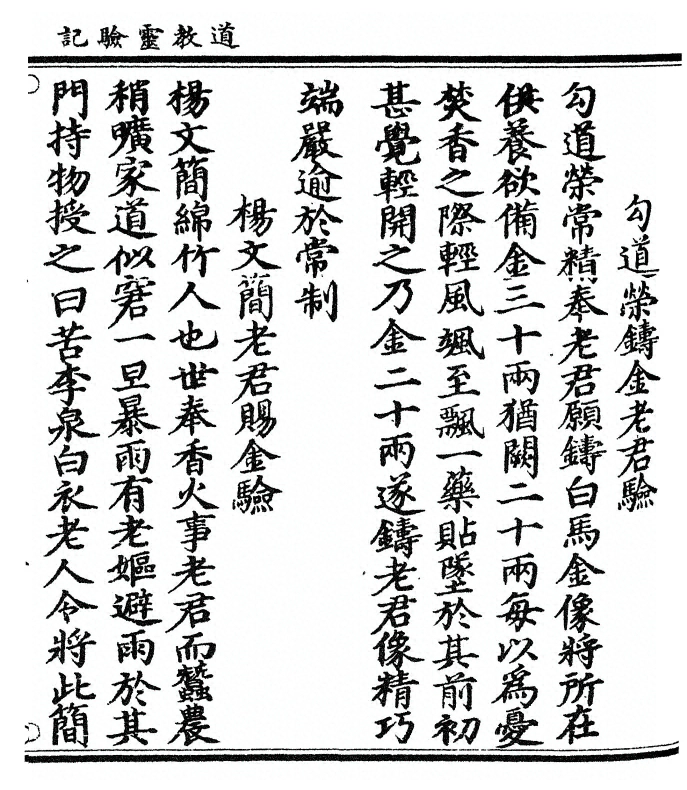 道教靈驗記
勾道榮鑄金老君驗
勾道榮常精奉老君願鑄白馬金像將所在
供養欲備金三十兩猶闕二十兩每以為憂
焚香之際輕風颯至飄一藥貼墜於其前初
甚覺輕開之乃金二十兩遂鑄老君像精巧
端嚴逾於常制
楊文簡老君賜金驗
楊文簡綿竹人也世奉香火事老君而蠶農
稍曠家道似窘一旦暴雨有老嫗避雨於其
門持物授之曰苦李泉白衣老人令將此簡